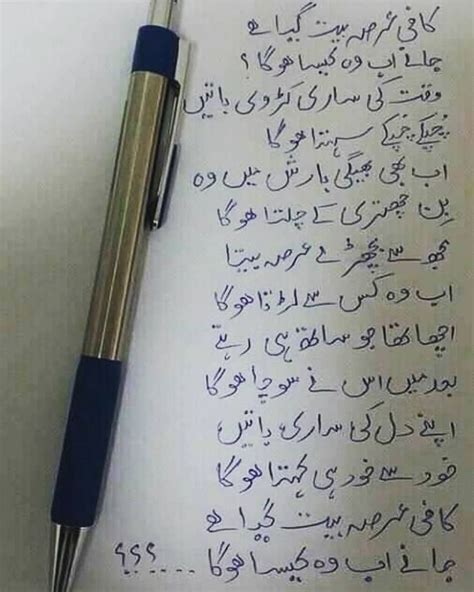 کافی عرصہ بیت گیا ہے
جانے اب وہ کیسا ہوگا؟
وقت کی ساری کڑوی باتیں
چپکے چپکے سہتا ہوگا
اب بھی بھیگی بارش میں وہ
بِن چھتری کے چلتا ہوگا
مجھ سے بچھڑے عرصہ بیتا
اب وہ کس سے لڑتا ہوگا
اچھا تھا جو ساتھ ہی رہتے
بعد میں اس نے سوچا ہوگا
اپنے دل کی ساری باتیں
خود سے خود ہی کہتا ہوگا
کافی عرصہ بیت گیا ہے
جانے اب وہ کیسا ہوگا ....؟؟؟